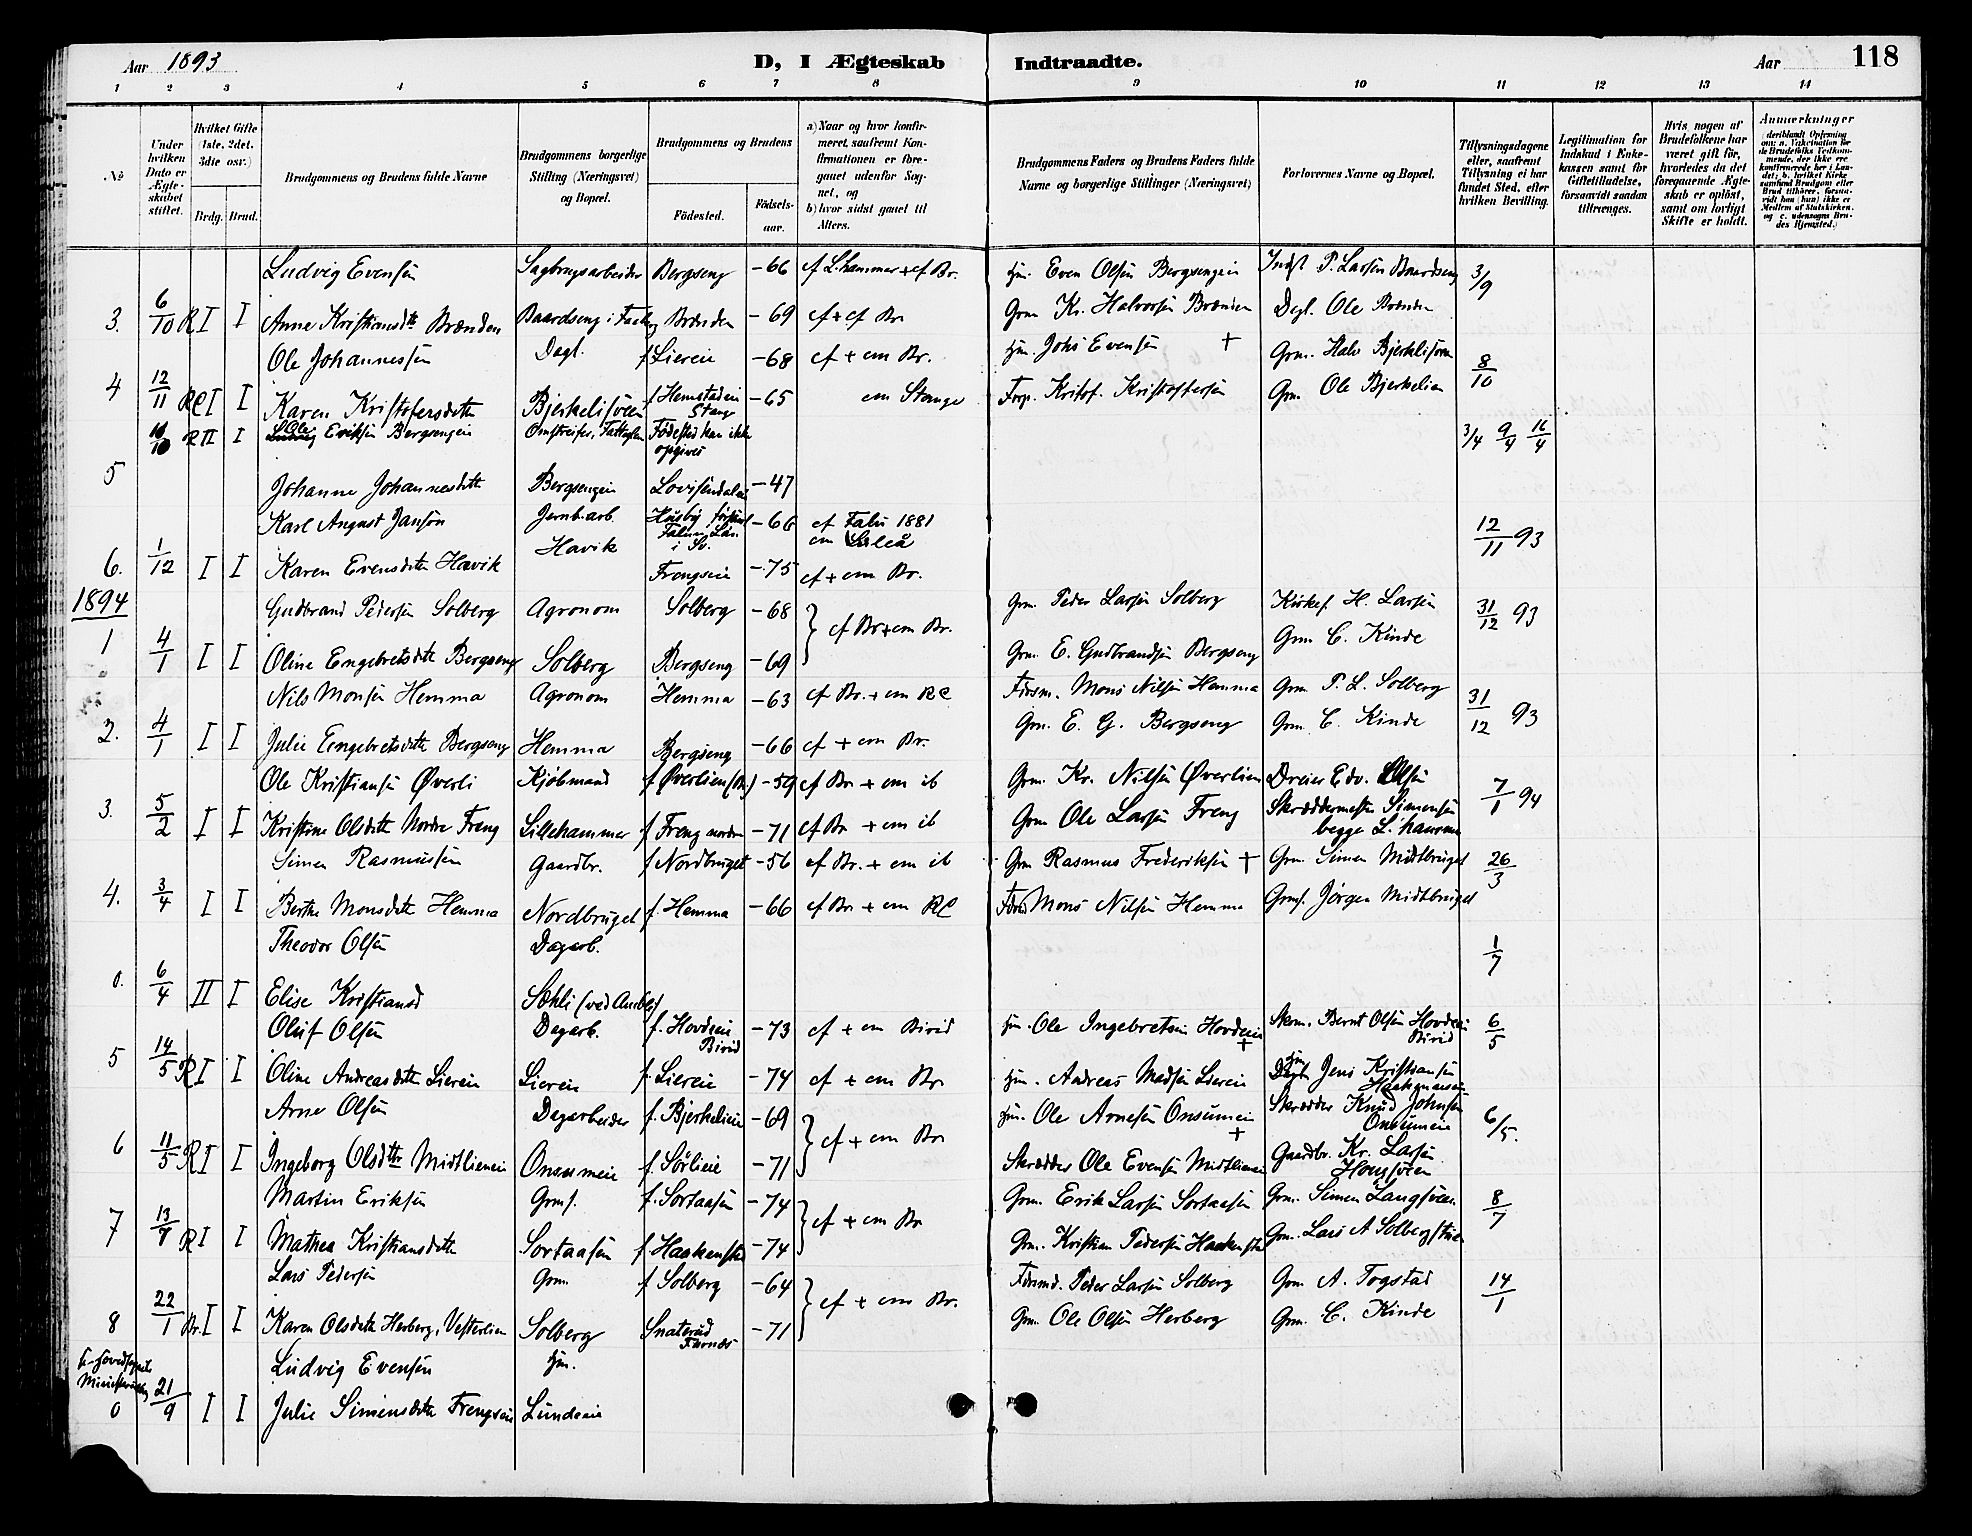 Aar 1893
D, I Ægteskab Indtraadte.
Aar 118
1 2 3 4 5 6 7 8 9 10 11 12 13 14
No
Under hvilken Dato er Ægteskabet stiftet.
Hvilket Gifte (1ste, 2det, 3die osv.)
Brdg. Brud.
Brudgommens og Brudens fulde Navne
Brudgommens borgerlige Stilling (Næringsvei) og Bopæl.
Brudgommens og Brudens
Fødested. Fødselsaar.
a) Naar og hvor konfirmeret, saafremt Konfirmationen er foregaaet udenfor Sognet, og
b) hvor sidst gaaet til Alters.
Brudgommens Faders og Brudens Faders fulde Navne og borgerlige Stillinger (Næringsvei)
Forlovernes Navne og Bopæl.
Tillysningsdagene eller, saafremt Tillysning ei har fundet Sted, efter hvilken Bevilling.
Legitimation for Indskud i Enkekassen samt for Giftetilladelse, forsaavidt saadan tiltrænges.
Hvis nogen af Brudefolkene har været gift før, hvorledes da det foregaaende Ægteskab er opløst, samt om lovligt Skifte er holdt.
Anmerkninger
Ludvig Evensen Sagbrugsarbeider Bergseng -66 cf L.hammer + cf Br. Hm. Even Olsen Bergsengeie Indst P. Larsen Baardseng 3/9
3. 6/10 R I I Anne Kristiansdtr Brænden Baardseng i Faaberg Brænden -69 cf + cf Br Grm Kr. Halvorsen Brænden Dagl. Ole Brænden
Ole Johannessen Dagl. f Liereie -68 cf + cm Br. Hm. Johs Evensen + Grm. Halv Bjerkelisveen 8/10
4 12/11 RC I I Karen Kristofersdatter Bjerkelisveen f Hemstadeie Stange -65 cm Stange Forp. Kristof. Kristoffersen Grm. Ole Bjerkelien
R II I Ole Eriksen Bergsengeie Omstreifer, Fattiglem Fødested kan ikke opgives 3/4 9/4 16/4
5 Johanne Johannesdtr Bergsengeie Lovisendalen -47
Karl August Janson Jernb.arb. Husby Falun Län i Sv. -66 cf Falu 1881 cm 12/11 93
6. 1/12 I I Karen Evensdtr Havik Havik Frengseie -75 cf + cm Br.
1894
Gudbrand Pedersen Solberg Agronom Solberg -68 } cf Br + cm Br. Grm. Peder Larsen Solberg Kirkes. H. Larsen 31/12 93
1 4/1 I I Oline Engebretsdtr Bergseng Solberg Bergseng -69 Grm. E. Gudbrandsen Bergseng Grm C. Kinde
Nils Monsen Hemma Agronom Hemma -63 cf Br. + cm RC Forsm. Mons Nilsen Hemma Grm P. L. Solberg 31/12 93
2. 4/1 I I Julie Engebretsdtr Bergseng Hemma Bergseng -66 cf + cm Br. Grm. E. G. Bergseng Grm. C. Kinde
Ole Kristiansen Øverli Kjøbmand f Øverlien (Br) -59 cf Br. + cm ib Grm. Kr. Nilsen Øverlien Dreier Edv. Olsen 7/1 94
3. 5/2 I I Kristine Olsdtr Nordre Freng Lillehammer f Freng nordre -71 cf Br + cm ib Grm Ole Larsen Freng Skræddermester Simensen begge L.hammer
Simen Rasmussen Gaardbr. f Nordbruget -56 cf Br. + cm ib Grm Rasmus Frederiksen + Grm. Simen Midtbruget 26/3
4. 3/4 I I Berthe Monsdtr Hemma Nordbruget f. Hemma -66 cf Br. + cm RC Mons Nilsen Hemma Grms. Jørgen Midtbruget
Theodor Olsen Dagarb. 1/7
0. 6/4 II I Elise Kristiansd Sæhli
Oluf Olsen Dagarb. f. Hovdeeie Birid -73 cf + cm Birid Hm. Ole Ingebretsen Hovdeeie + Skom. Bernt Olsen Hovdeeie Birid 6/5
5 14/5 R I I Oline Andreasdtr Liereie Liereie f. Liereie -74 cf + cm Br. Hm. Andreas Madsen Liereie Hm Jens Kristiansen
Arne Olsen Dagarbeider f. Bjerkelieie -69 } cf + cm Br Hm. Ole Arnesen Onsumeie + Skrædder Knud Johnsen Onsumeie 6/5.
6 11/5 R I I Ingeborg Olsdtr Midtlieneie Onsumeie f. Sørlieie -71 Skrædder Ole Evensen Midtlieneie Gaardbr. Kr. Larsen
Martin Eriksen Grms. f. Sortaasen -74 } cf + cm Br Grm. Erik Larsen Sortaasen Grm. Simen Langsveen 8/7
7 13/7 R I I Mathea Kristiansdtr Sortaasen f Haakenstad -74 Grm. Kristian Pedersen Haakenstad Grm. Lars A Solbergstuen
Lars Pedersen Grm. f Solberg -64 } cf + cm Br. Forsmd. Peder Larsen Solberg Grm A. Togstad 14/1
8 22/1 Br. I I Karen Olsdtr Herberg, Vesterlien Solberg Snaterud Furnes -71 Grm. Ole Olsen Herberg Grm. C. Kinde
Ludvig Evensen Hm.
0 21/9 I I Julie Simensdtr Frengseie Lundeeie